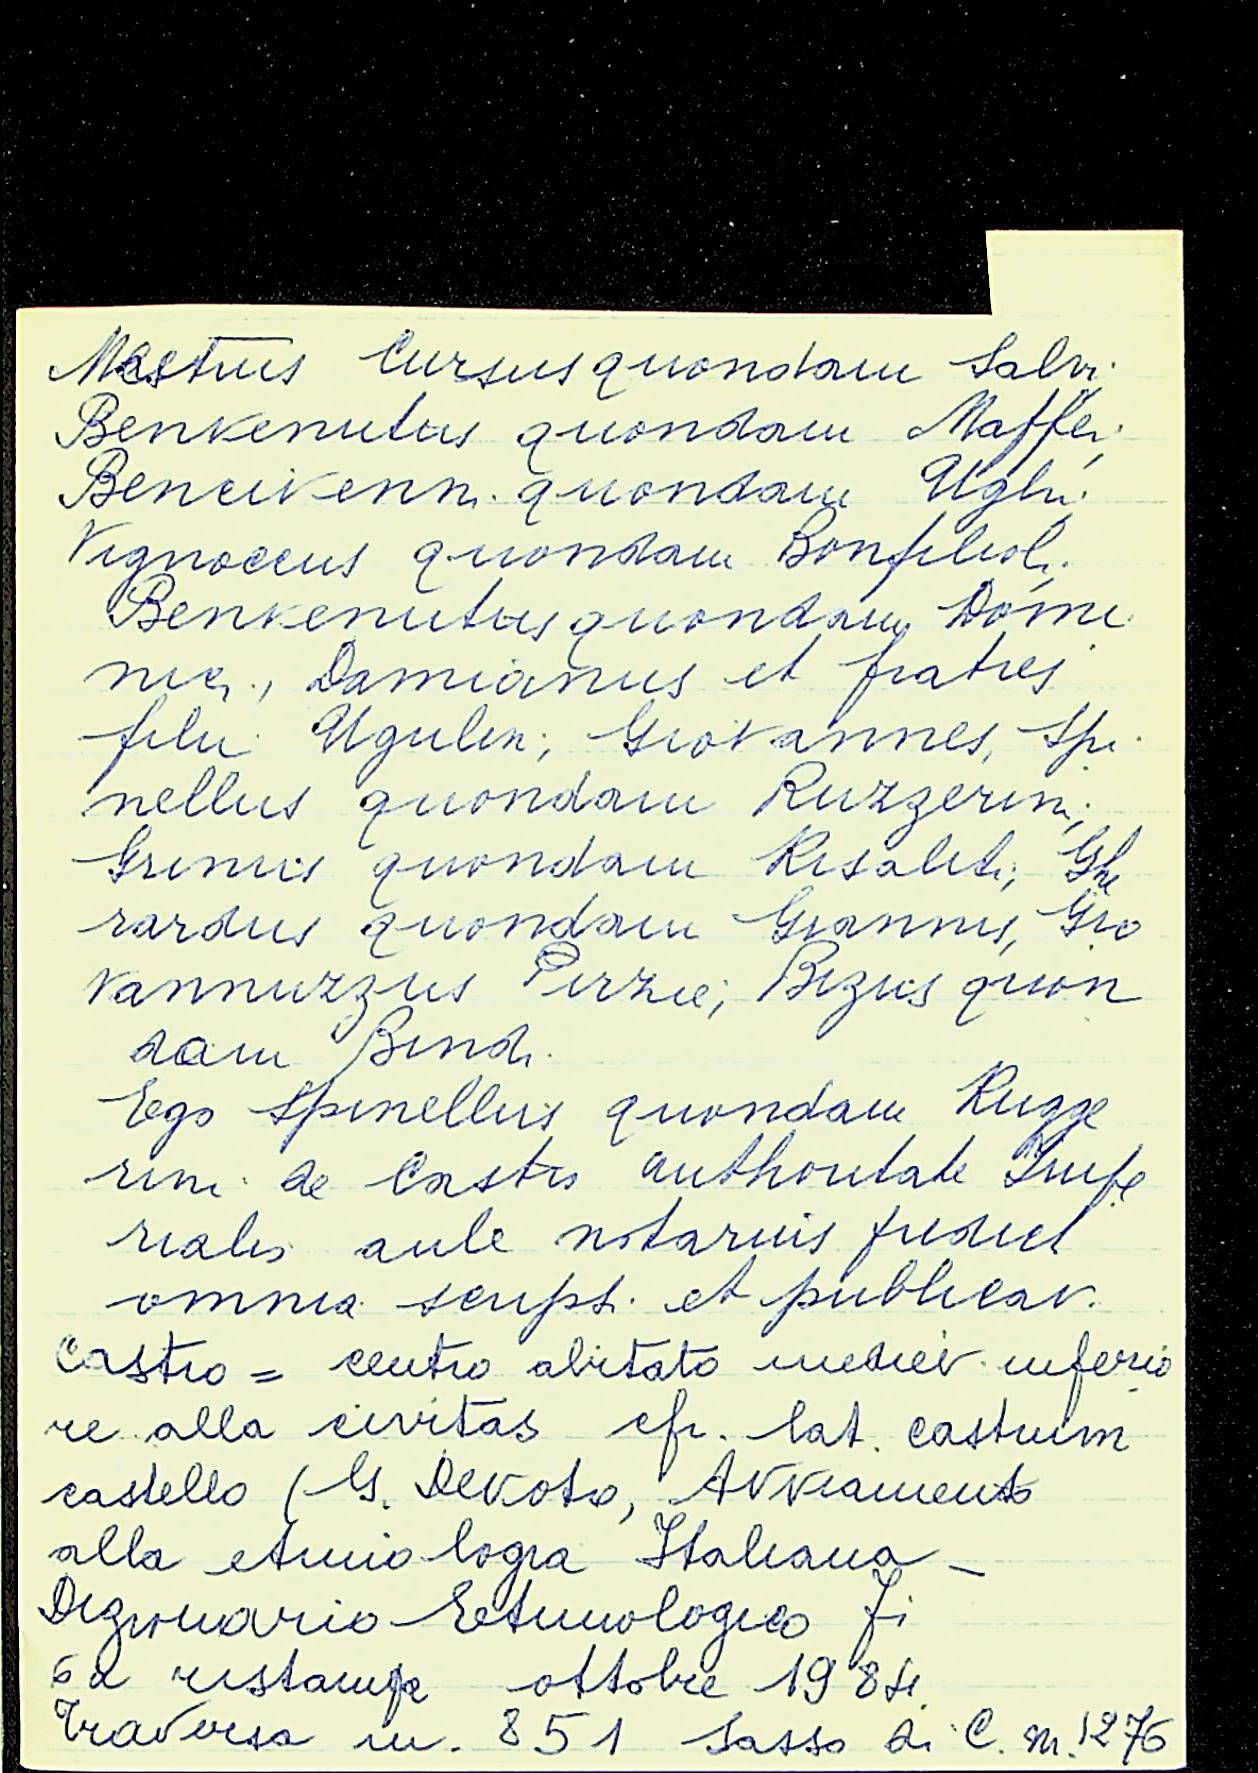 Mastrus Cursus quondam Salvi
Benvenutus quondam Maffei,
Bencivenni quondam Ughi
Vignoccus quondam Bonfilioli
Benvenutus quondam Domi
nici, Damianus et fratres
filii Ugulini, Giovannes, Spi
nellus quondam Ruzzerini,
Grinus quondam Risaliti, Ghe
rardus quondam Giannis, Gio
vannuzzus Pizzii; Bizus quon
dam Bindi
Ego Spinellus quondam Rugge
rini de Castro authoritate Impe
rialis aule notarius
omnia scripsi et publicavi
Castro = centro abitato mediev. inferio
re alla civitas cfr. lat. castrum
castello (G. Devoto, Avviamento
alla etimiologia Italiana -
Dizionario Etimologico Fi
6a ristampa ottobre 1984
Traversa m. 851 Sasso di C. m. 1276